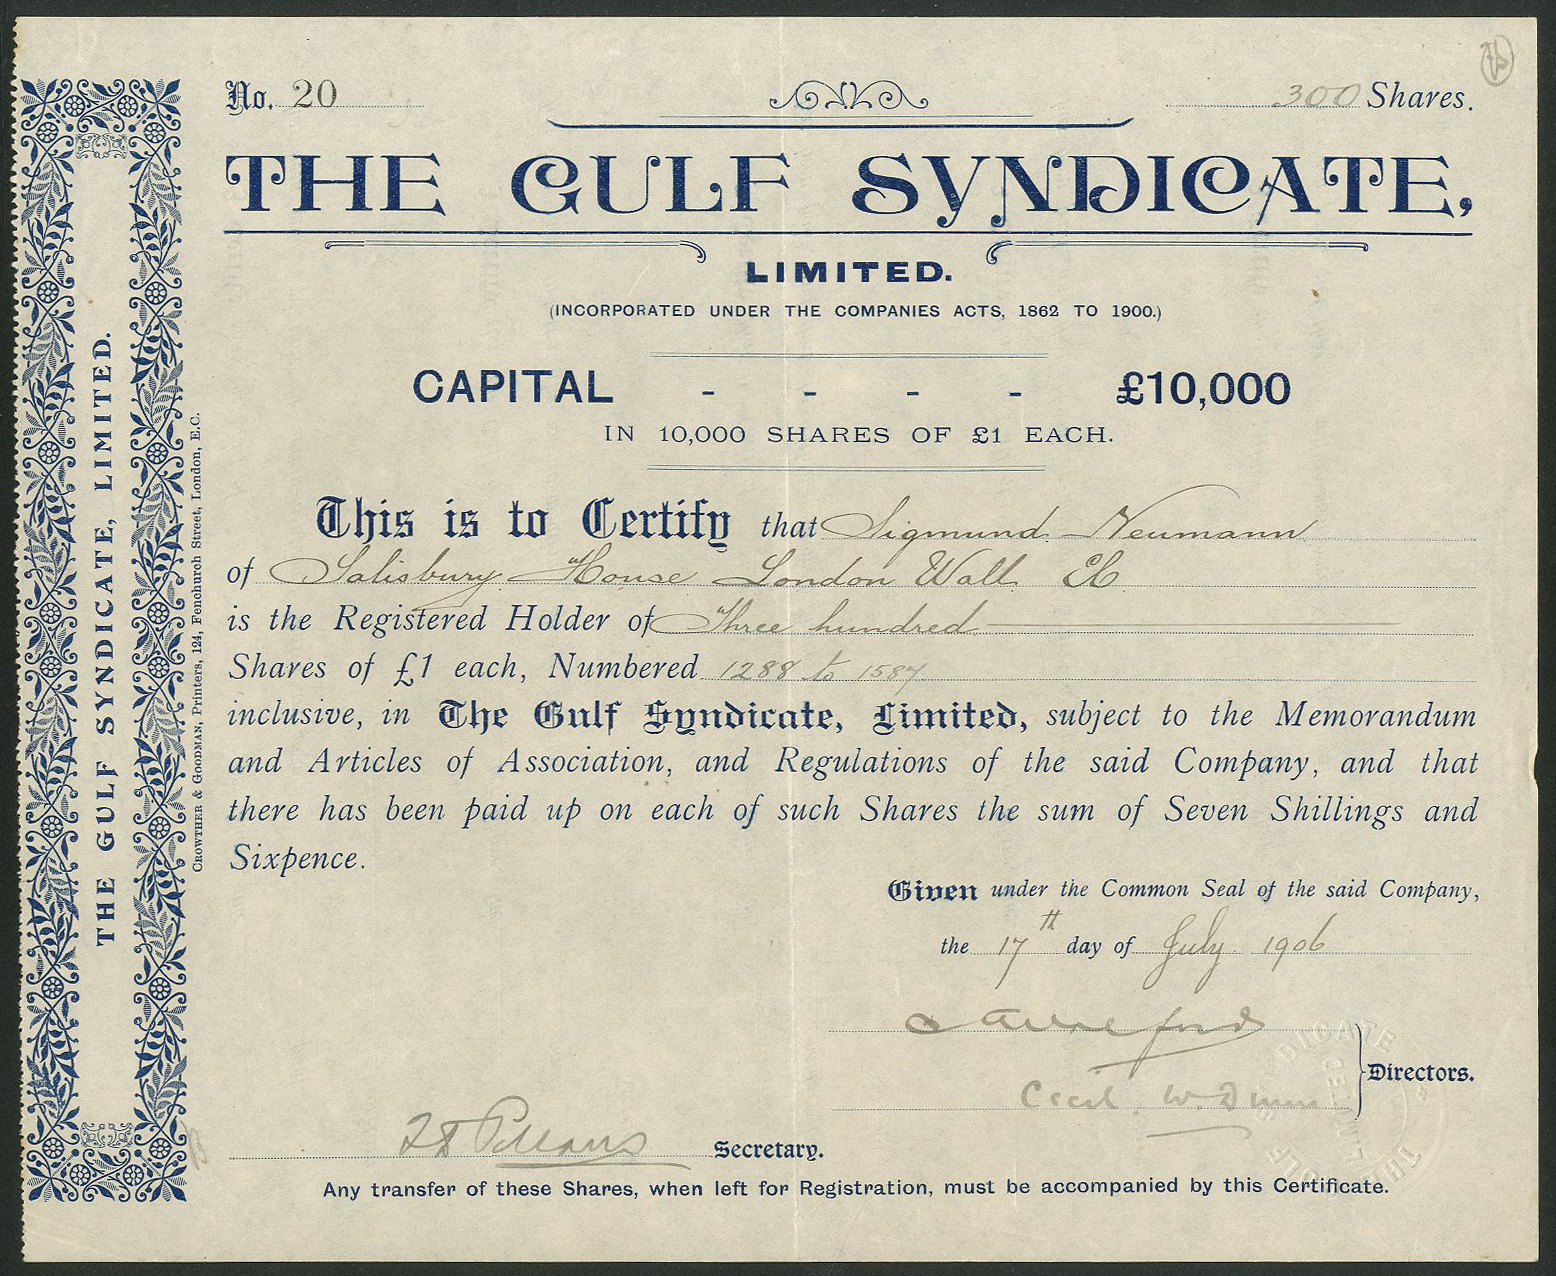 No. 20
300 Shares.
THE GULF SYNDICATE,
LIMITED.
(INCORPORATED UNDER THE COMPANIES ACTS, 1862 TO 1900.)
CAPITAL - - - - £10,000
IN 10,000 SHARES OF £1 EACH.
This is to Certify that Sigmund Neumann
of Salisbury House London Wall EC
is the Registered Holder of Three hundred
Shares of £1 each, Numbered 1288 to 1587
inclusive, in The Gulf Syndicate, Limited, subject to the Memorandum
and Articles of Association, and Regulations of the said Company, and that
there has been paid up on each of such Shares the sum of Seven Shillings and
Sixpence.
Given under the Common Seal of the said Company,
the 17th day of July 1906
Cecil W.
Directors.
Secretary.
Any transfer of these Shares, when left for Registration, must be accompanied by this Certificate.
THE GULF SYNDICATE, LIMITED.
CROWTHER & GOODMAN, Printers, 124, Fenchurch Street, London, E.C.
THE GULF SYNDICATE
LIMITED